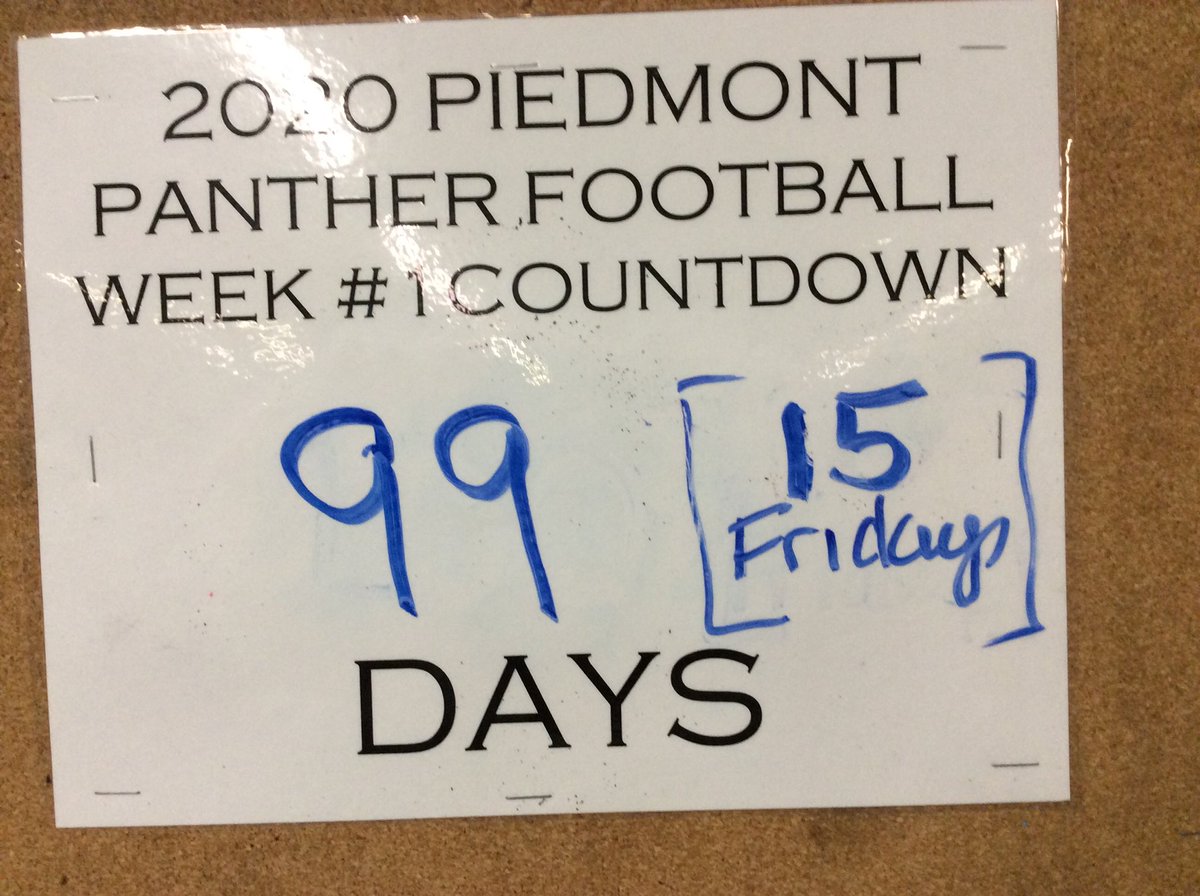 2020 PIEDMONT
PANTHER FOOTBALL
WEEK #1 COUNTDOWN
99
[15
Fridays]
DAYS